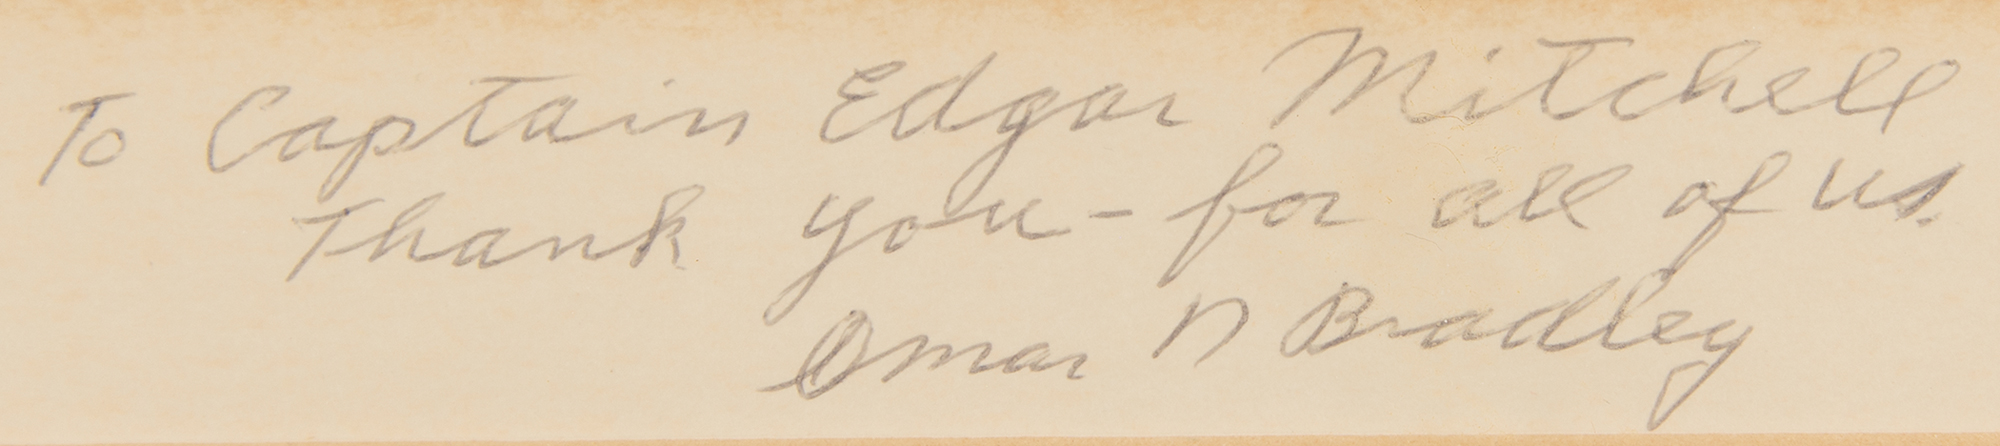 To Captain Edgar Mitchell
Thank you - for all of us.
Omar N Bradley